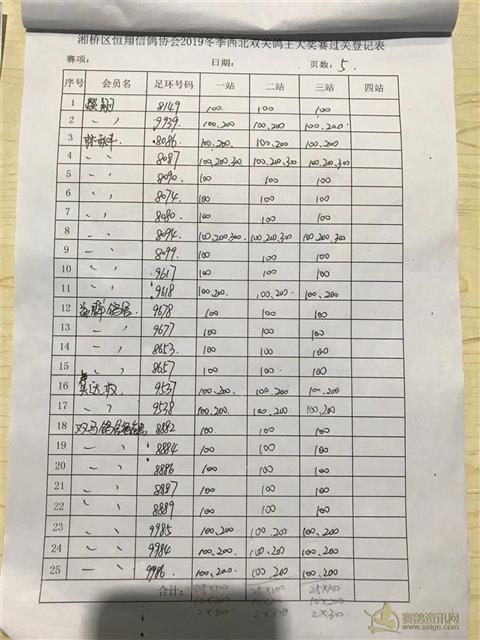 湘桥区恒翔信鸽协会2019冬季西北双关鸽王大奖赛过关登记表
赛项: 日期: 页数: 5.
序号 会员名 足环号码 一站 二站 三站 四站
1 8149 100. 100 100
2 〃 9939. 100.200 100.200 100.200
3 8086. 100.200. 100.200 100.200
4 〃 8087 100.200.300 100.200.300 100.200.300
5 〃 8090. 100 100 100
6 〃 8074 100 100 100
7 〃 8080. 100 100 100
8 〃 8094 100.200.300 100.200.300 100.200.300
9 〃 8099 100 100 100
10 〃 9617 100 100 100
11 〃 9618 100.200. 100.200 100.200
12 9678 100 100 100
13 〃 9677 100 100 100
14 〃 8653 100 100 100
15 〃 8657 100 100 100
16 9537 100.200 100.200 100.200
17 〃 9538 100.200 100.200 100.200
18 8882 100 100 100
19 〃 8884 100 100 100
20 〃 8886 100 100 100
21 〃 8887 100 100 100
22 〃 8889 100 100 100
23 〃 9985 100.200 100.200 100.200
24 〃 9984 100.200 100.200 100.200
25 〃 9986. 100.200 100.200 100.200
合计: 25×100 25×100 25×100
10×200 10×200 10×200
2×300 2×300 2×300
赛鸽资讯网
www.saige.com